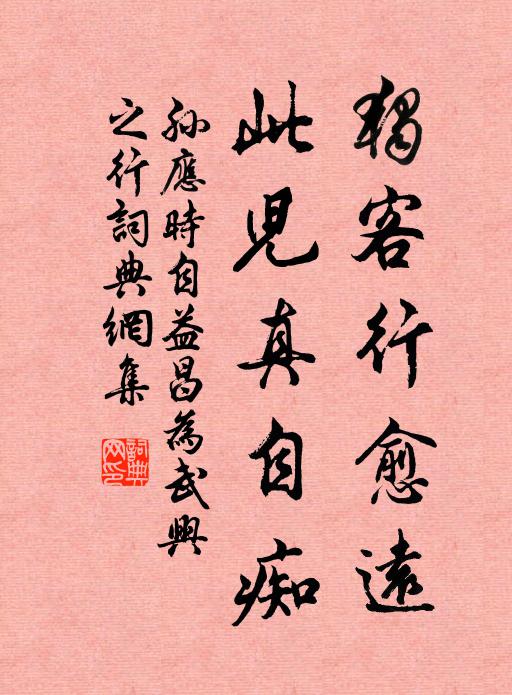 獨客行愈遠
此兒真自痴
孫應時自益昌為武興
之行詞典網集
詞典網印